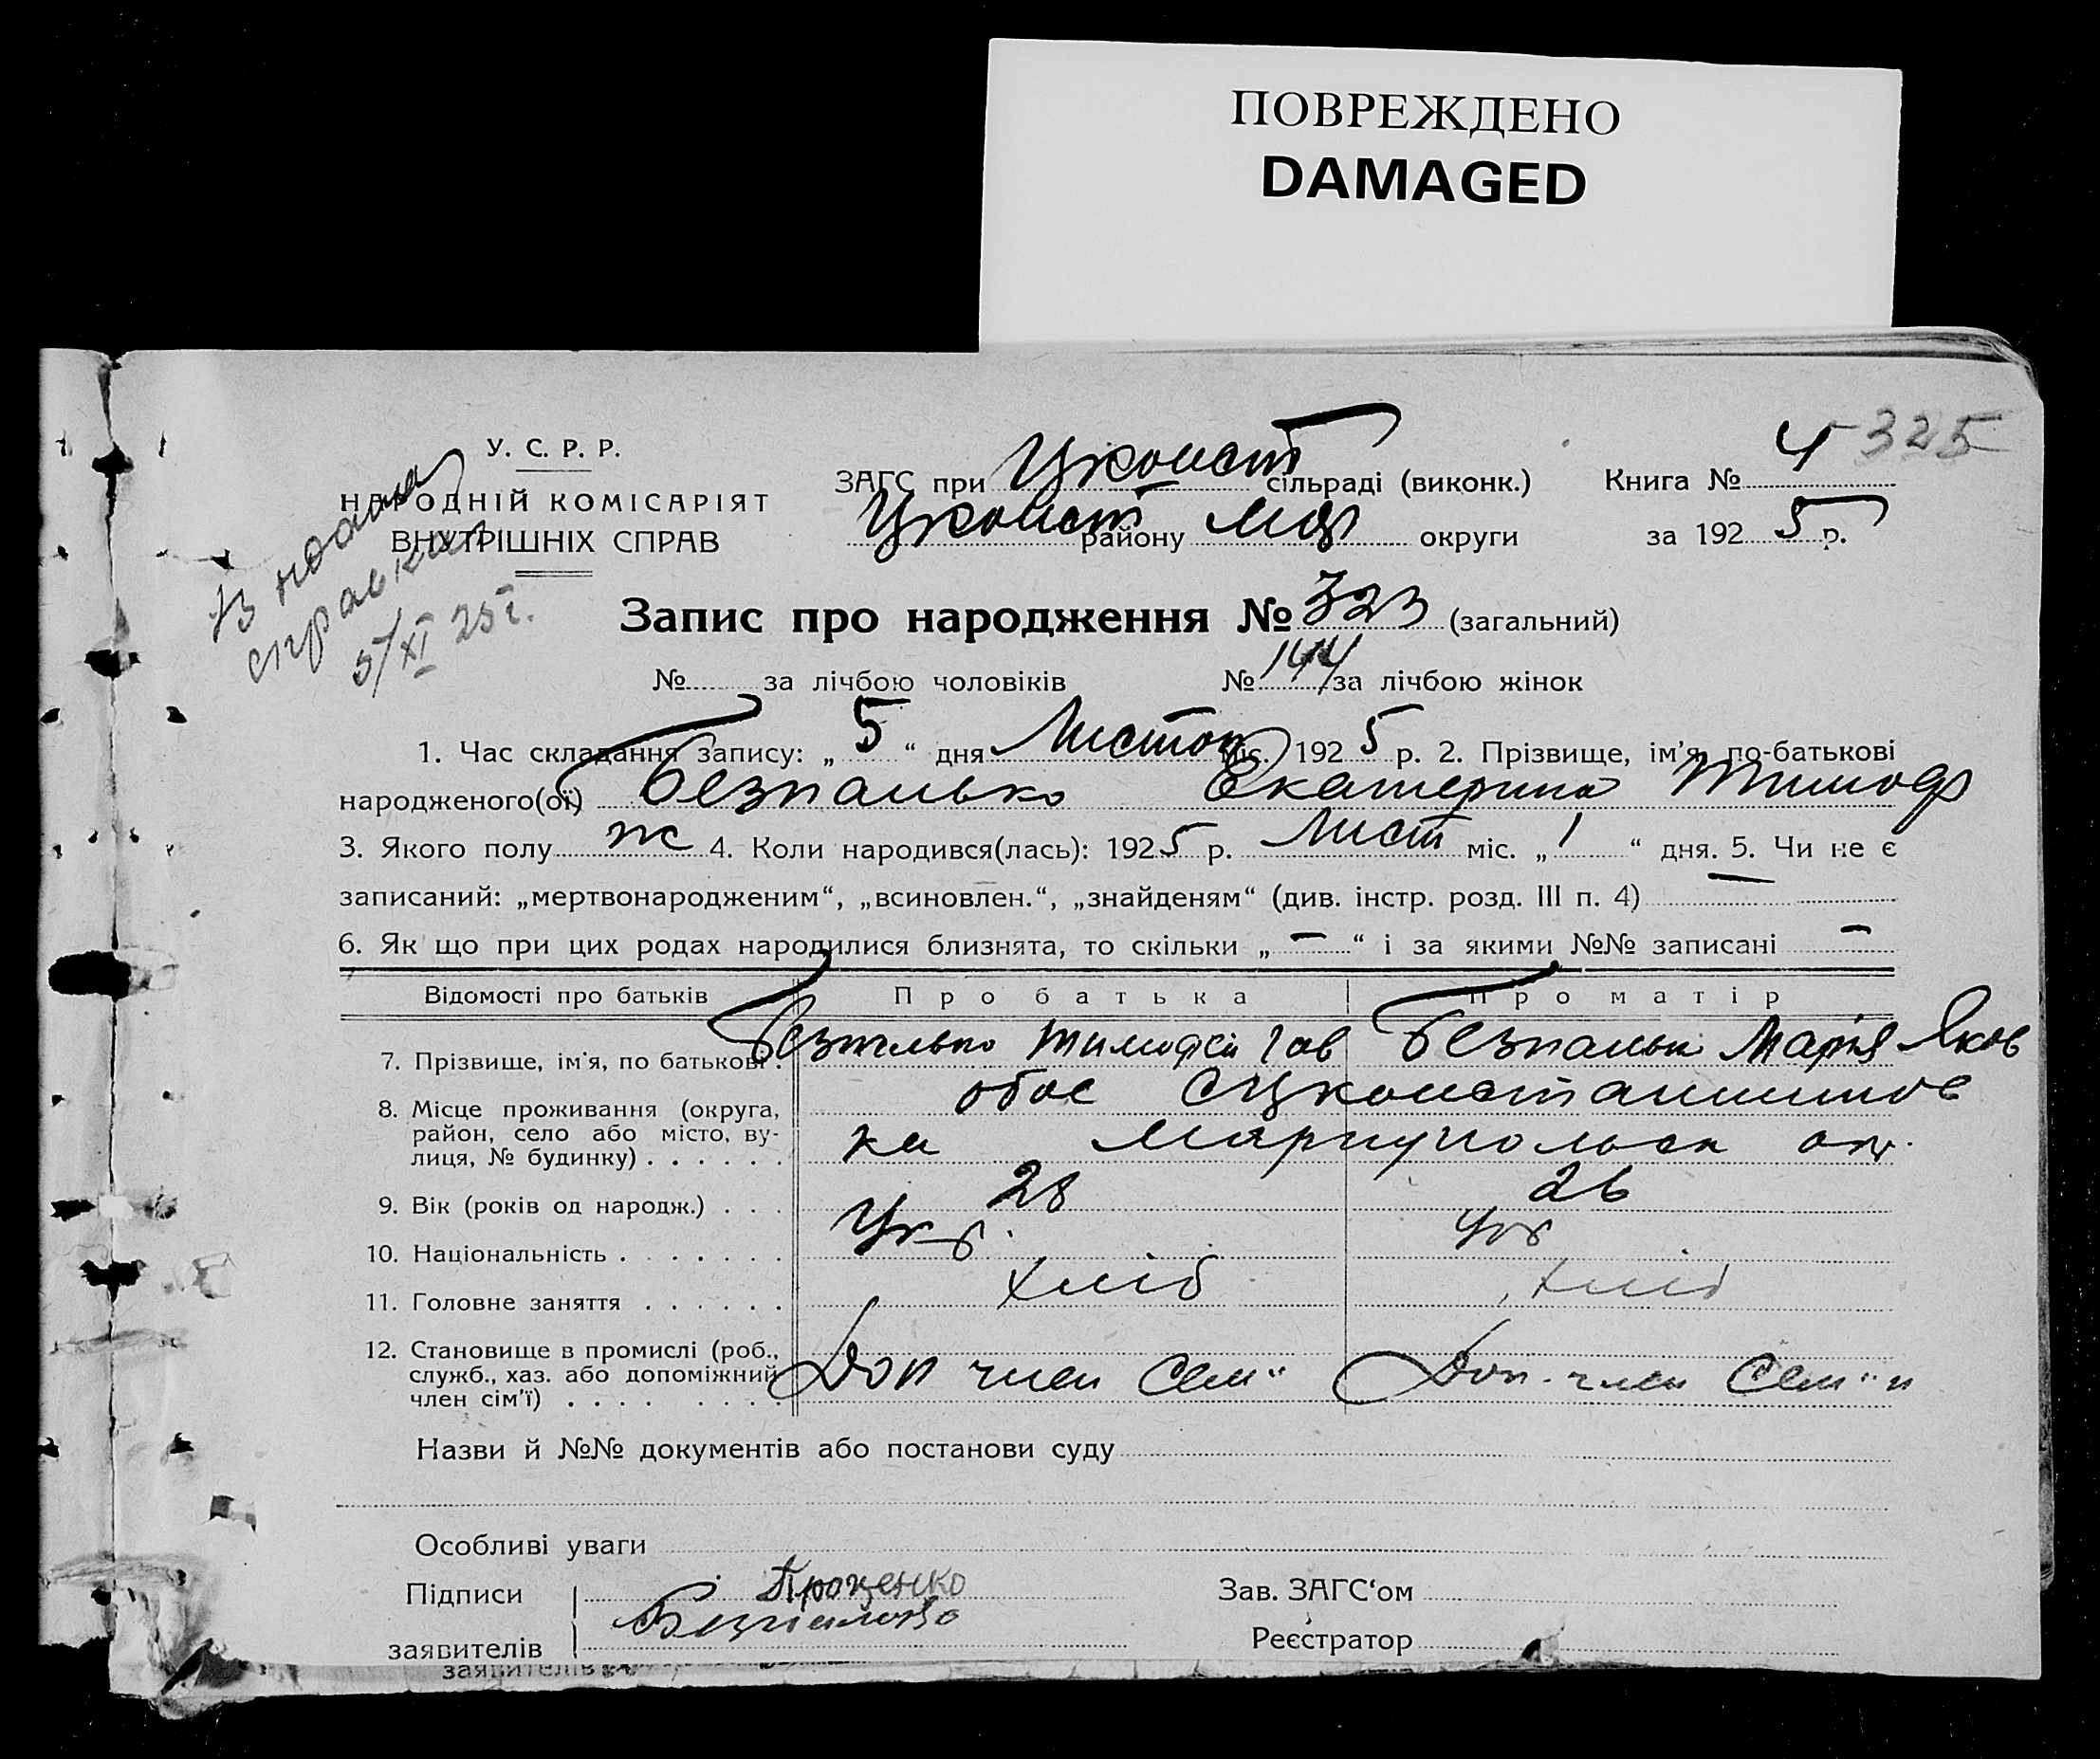 ПОВРЕЖДЕНО
DAMAGED
325
У. С. Р. Р.
НАРОДНІЙ КОМІСАРІЯТ
ВНУТРІШНІХ СПРАВ
ЗАГС при Цконст сільраді (виконк.) Книга № 4
Цконст району Мар округи за 1925 р.
справка
5/XI 25 г.
Запис про народження № 323 (загальний)
№ за лічбою чоловіків № 144 за лічбою жінок
1. Час складання запису: „5“ дня Листоп міс. 1925 р. 2. Прізвище, ім'я, по-батькові
народженого(ої) Безпалько Екатерина Тимоф
3. Якого полу ж 4. Коли народився(лась): 1925 р. Лист міс. „1“ дня. 5. Чи не є
записаний: „мертвонародженим“, „всиновлен.“, „знайденям“ (див. інстр. розд. III п. 4) —
6. Як що при цих родах народилися близнята, то скільки „—“ і за якими №№ записані —
Відомості про батьків Про батька Про матір
7. Прізвище, ім'я, по батькові . Безпалько Тимофей Гав Безпальк Марія Яков
8. Місце проживання (округа, обоє с Цконстантинов
район, село або місто, ву-
лиця, № будинку) . . . . . . ка Мариупольск ок.
9. Вік (років од народж.) . . . 28 26
10. Національність . . . . . . . Укр. Укр
11. Головне заняття . . . . . . хліб хліб
12. Становище в промислі (роб.,
служб., хаз. або допоміжний Доп член Сем" Доп. член Сем"и
член сім'ї) . . . . . . . .
Назви й №№ документів або постанови суду
Особливі уваги
Підписи Проценко Зав. ЗАГС'ом
заявителів Безпалько Реєстратор
заявителів